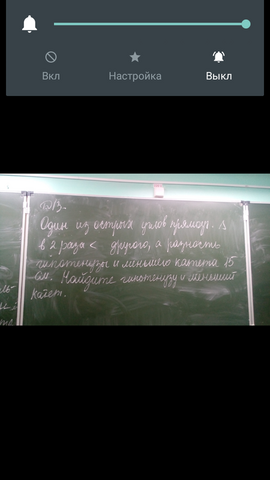 Вкл
Настройка
Выкл
Один из острых углов прямоуг. Δ
в 2 раза < другого, а разность
гипотенузы и меньшего катета 15
см. Найдите гипотенузу и меньший
катет.